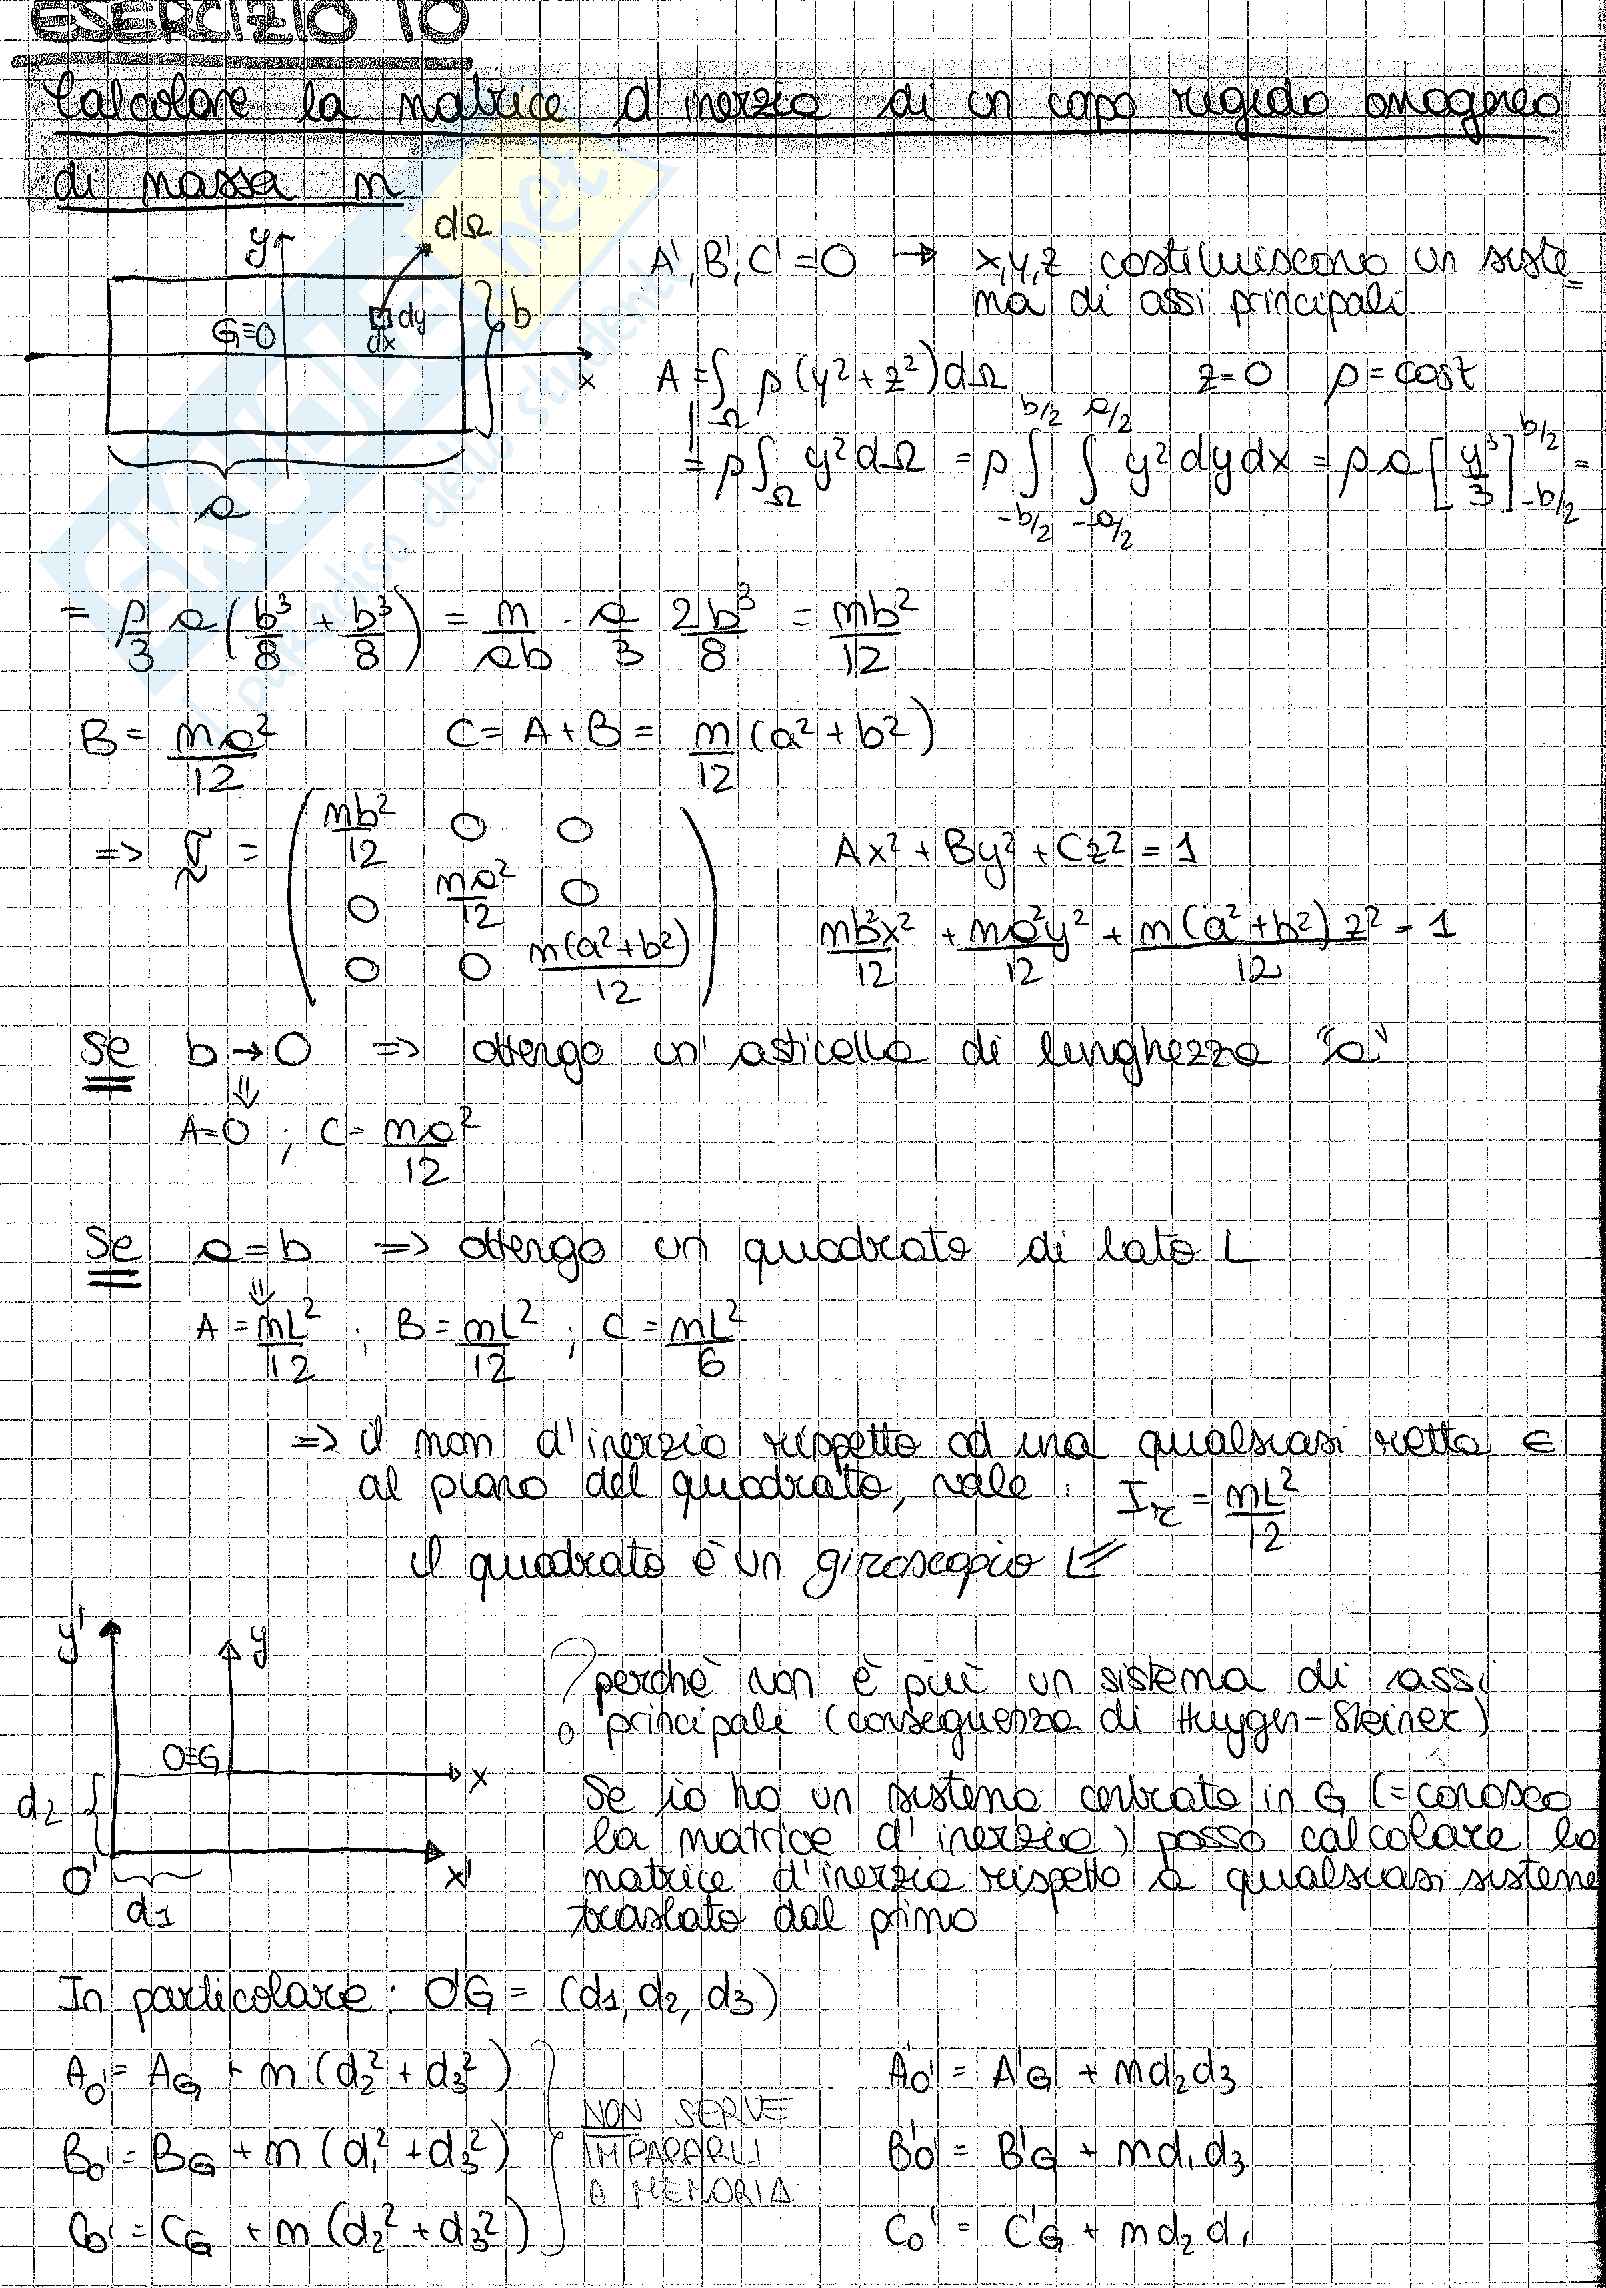 ESERCIZIO 10
Calcolare la matrice d'inerzia di un corpo rigido omogeneo
di massa m
y dΩ
G≡O dy dx b
x
a
A', B', C' = 0 → x,y,z costituiscono un siste=
ma di assi principali
A = ∫_Ω ρ(y²+z²)dΩ z=0 ρ=cost
= ρ∫_Ω y²dΩ = ρ ∫_{-b/2}^{b/2} ∫_{-a/2}^{a/2} y²dydx = ρa [y³/3]_{-b/2}^{b/2} =
= ρ/3 a (b³/8 + b³/8) = m/ab · a/3 2b³/8 = mb²/12
B = ma²/12 C = A+B = m/12 (a²+b²)
=> I = ( mb²/12 0 0 Ax² + By² + Cz² = 1
0 ma²/12 0
0 0 m(a²+b²)/12 ) mb²x²/12 + ma²y²/12 + m(a²+b²)z²/12 = 1
Se b→0 => ottengo un'asticella di lunghezza "a"
⇓
A=0 ; C = ma²/12
Se a=b => ottengo un quadrato di lato L
⇓
A = mL²/12 ; B = mL²/12 ; C = mL²/6
=> il mom d'inerzia rispetto ad una qualsiasi retta ∈
al piano del quadrato, vale : I_r = mL²/12
il quadrato è un giroscopio
y' y
O≡G x
d2
O' x'
d1
? perchè non è più un sistema di assi
principali (conseguenza di Huygen-Steiner)
Se io ho un sistema centrato in G (=conosco
la matrice d'inerzia) posso calcolare la
matrice d'inerzia rispetto a qualsiasi sistema
traslato dal primo
In particolare: O'G = (d1, d2, d3)
A_O' = A_G + m(d2² + d3²) A'_O' = A'_G + md2d3
B_O' = B_G + m(d1² + d3²) B'_O' = B'_G + md1d3
C_O' = C_G + m(d2² + d3²) C'_O' = C'_G + md2d1
NON SERVE
IMPARARLI
A MEMORIA
SKUOLA.net